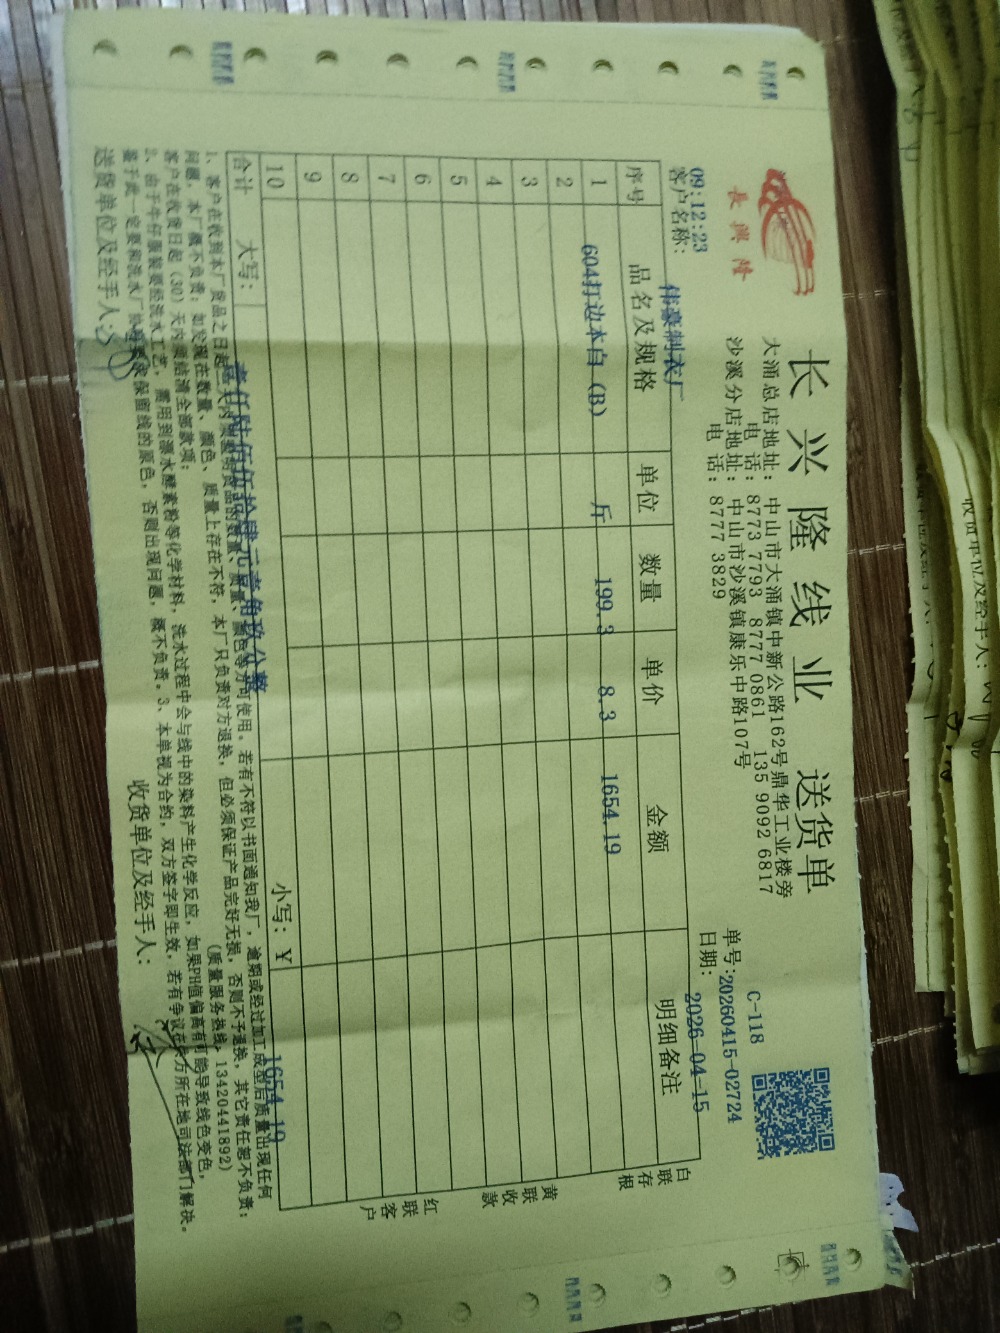 長興隆
长兴隆线业 送货单
大涌总店地址: 中山市大涌镇中新公路162号鼎华工业楼旁
电 话: 8773 7793 8777 0861 135 9092 6817
沙溪分店地址: 中山市沙溪镇康乐中路107号
电 话: 8777 3829
C-118
单号:20260415-02724
日期: 2026-04-15
09:12:23
客户名称: 伟豪制衣厂
序号 品名及规格 单位 数量 单价 金额 明细备注
1 604打边本白(B) 斤 199.3 8.3 1654.19
2
3
4
5
6
7
8
9
10
合计 大写: 壹仟陆佰伍拾肆元壹角玖分整 小写: ¥ 1654.19
1、客户在收到本厂货品之日起 天内 货品的数量、质量、颜色等方可使用。若有不符以书面通知我厂, 逾期或经过加工成型后质量出现任何
问题, 本厂概不负责; 如发现在数量、颜色、质量上存在不符, 本厂只负责对方退换, 但必须保证产品完好无损, 否则不予退换, 其它责任恕不负责;
客户在收货日起(30)天内须结清全部款项; (质量服务热线: 13420441892)
2、由于牛仔服装要经洗水工艺, 需用到漂水酵素粉等化学材料, 洗水过程中会与线中的染料产生化学反应, 如果PH值偏高有可能导致线色变色,
鉴于此一定要和洗水厂 保留线的原色, 否则出现问题, 概不负责。3、本单视为合约, 双方签字即生效, 若有争议在 方所在地司法部门解决。
送货单位及经手人:
收货单位及经手人:
白联存根
黄联收款
红联客户
收货单位及经手人: